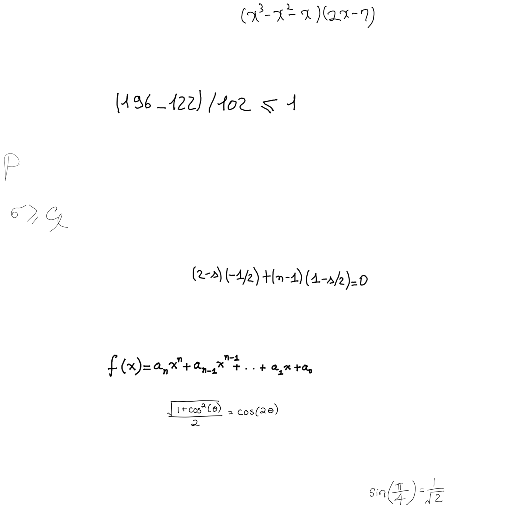 (x³-x²-x)(2x-7)
(196-122)/102 ≤ 1
P
σ ≥ C₂
(2-s)(-1/2)+(n-1)(1-s/2)=0
f(x)=aₙxⁿ+aₙ₋₁xⁿ⁻¹+..+a₁x+a₀
√(1+cos²(θ))/2 = cos(2θ)
sin(π/4)=1/√2